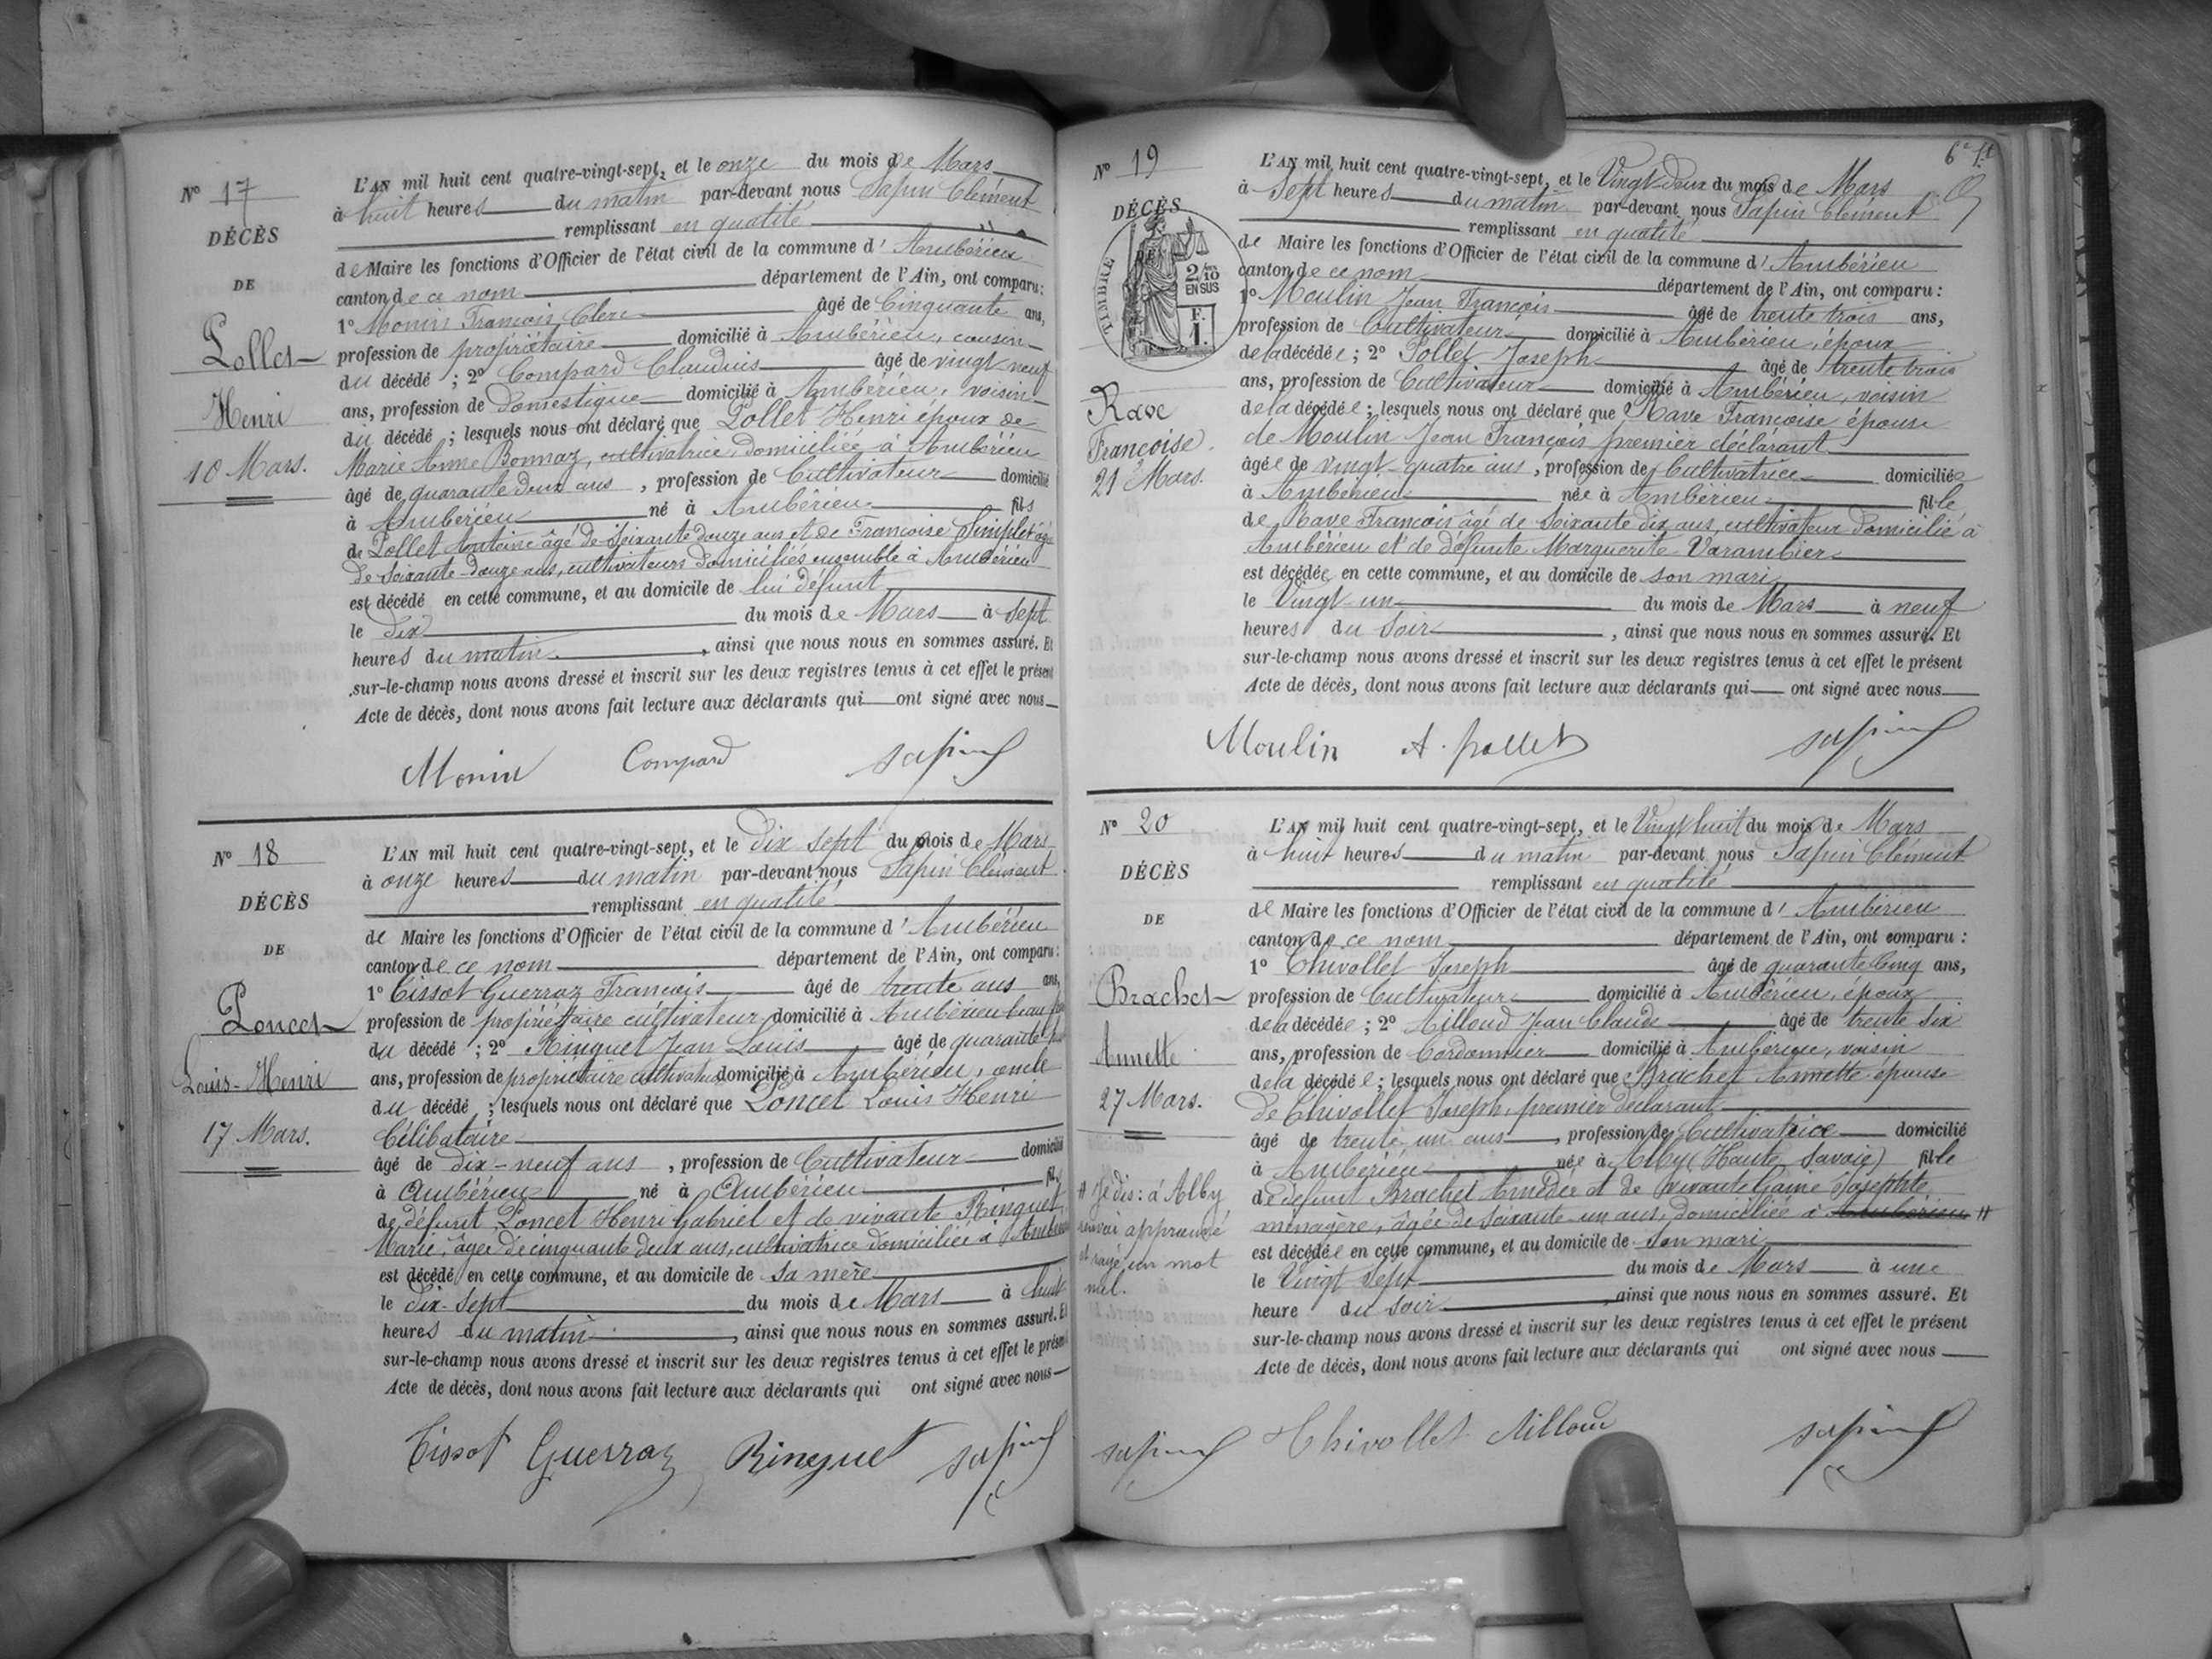 N° 17
DÉCÈS
DE
Pollet
Henri
10 Mars.
L'AN mil huit cent quatre-vingt-sept, et le onze du mois de Mars
à huit heures du matin par-devant nous Sapin Clément
remplissant en qualité
de Maire les fonctions d'Officier de l'état civil de la commune d'Ambérieu
canton de ce nom département de l'Ain, ont comparu :
1° Monin François Clerc âgé de Cinquante ans,
profession de propriétaire domicilié à Ambérieu, cousin
du décédé ; 2° Compard Claudius âgé de vingt neuf
ans, profession de Domestique domicilié à Ambérieu, voisin
du décédé ; lesquels nous ont déclaré que Pollet Henri époux de
Marie Anne Bonnaz, cultivatrice, domiciliée à Ambérieu
âgé de quarante deux ans, profession de Cultivateur domicilié
à Ambérieu né à Ambérieu fils
de Pollet Antoine âgé de Soixante douze ans et de Françoise Simplet âgée
de Soixante-douze ans, cultivateurs domiciliés ensemble à Ambérieu
est décédé en cette commune, et au domicile de lui défunt
le dix du mois de Mars à sept
heures du matin, ainsi que nous nous en sommes assuré. Et
sur-le-champ nous avons dressé et inscrit sur les deux registres tenus à cet effet le présent
Acte de décès, dont nous avons fait lecture aux déclarants qui ont signé avec nous
Monin Compard Sapin
N° 18
DÉCÈS
DE
Poncet
Louis-Henri
17 Mars.
L'AN mil huit cent quatre-vingt-sept, et le dix sept du mois de Mars
à onze heures du matin par-devant nous Sapin Clément
remplissant en qualité
de Maire les fonctions d'Officier de l'état civil de la commune d'Ambérieu
canton de ce nom département de l'Ain, ont comparu :
1° Tissot Guerraz François âgé de trente ans ans,
profession de propriétaire cultivateur domicilié à Ambérieu beau
du décédé ; 2° Ringuet Jean Louis âgé de quarante
ans, profession de propriétaire cultivateur domicilié à Ambérieu, oncle
du décédé ; lesquels nous ont déclaré que Poncet Louis Henri
Célibataire
âgé de dix-neuf ans, profession de Cultivateur domicilié
à Ambérieu né à Ambérieu fils
de défunt Poncet Henri Gabriel et de vivante Ringuet
Marie, âgée de cinquante deux ans, cultivatrice domiciliée à Ambérieu
est décédé en cette commune, et au domicile de sa mère
le dix-sept du mois de Mars à huit
heures du matin, ainsi que nous nous en sommes assuré. Et
sur-le-champ nous avons dressé et inscrit sur les deux registres tenus à cet effet le présent
Acte de décès, dont nous avons fait lecture aux déclarants qui ont signé avec nous
Tissot Guerraz Ringuet Sapin
N° 19
DÉCÈS
DE
TIMBRE
2/10 EN SUS
F. 1.
Rave
Françoise
21 Mars.
L'AN mil huit cent quatre-vingt-sept, et le Vingt-Deux du mois de Mars
à Sept heures du matin par-devant nous Sapin Clément
remplissant en qualité
de Maire les fonctions d'Officier de l'état civil de la commune d'Ambérieu
canton de ce nom département de l'Ain, ont comparu :
1° Moulin Jean François âgé de trente trois ans,
profession de Cultivateur domicilié à Ambérieu, époux
de la décédée ; 2° Pollet Joseph âgé de trente trois
ans, profession de Cultivateur domicilié à Ambérieu, voisin
de la décédée ; lesquels nous ont déclaré que Rave Françoise épouse
de Moulin Jean François premier déclarant
âgée de vingt-quatre ans, profession de Cultivatrice domiciliée
à Ambérieu née à Ambérieu fille
de Rave François âgé de Soixante dix ans, cultivateur domicilié à
Ambérieu et de défunte Marguerite Varambier
est décédée en cette commune, et au domicile de son mari
le Vingt-un du mois de Mars à neuf
heures du Soir, ainsi que nous nous en sommes assuré. Et
sur-le-champ nous avons dressé et inscrit sur les deux registres tenus à cet effet le présent
Acte de décès, dont nous avons fait lecture aux déclarants qui ont signé avec nous
Moulin A. pollet Sapin
N° 20
DÉCÈS
DE
Brachet
Annette
27 Mars.
# Je dis : à Alby
renvoi approuvé
et rayé un mot
nul.
L'AN mil huit cent quatre-vingt-sept, et le Vingt huit du mois de Mars
à huit heures du matin par-devant nous Sapin Clément
remplissant en qualité
de Maire les fonctions d'Officier de l'état civil de la commune d'Ambérieu
canton de ce nom département de l'Ain, ont comparu :
1° Chivollet Joseph âgé de quarante Cinq ans,
profession de Cultivateur domicilié à Ambérieu, époux
de la décédée ; 2° Milloud Jean Claude âgé de trente Six
ans, profession de Cordonnier domicilié à Ambérieu, voisin
de la décédée ; lesquels nous ont déclaré que Brachet Annette épouse
de Chivollet Joseph, premier déclarant
âgé de trente-un ans, profession de Cultivatrice domicilié
à Ambérieu née à Alby (Haute Savoie) fille
de défunt Brachet Amédée et de vivante Gaime Josephte
ménagère, âgée de Soixante-un ans, domiciliée à Ambérieu #
est décédée en cette commune, et au domicile de son mari
le Vingt Sept du mois de Mars à une
heure du Soir, ainsi que nous nous en sommes assuré. Et
sur-le-champ nous avons dressé et inscrit sur les deux registres tenus à cet effet le présent
Acte de décès, dont nous avons fait lecture aux déclarants qui ont signé avec nous
Sapin Chivollet Milloud Sapin